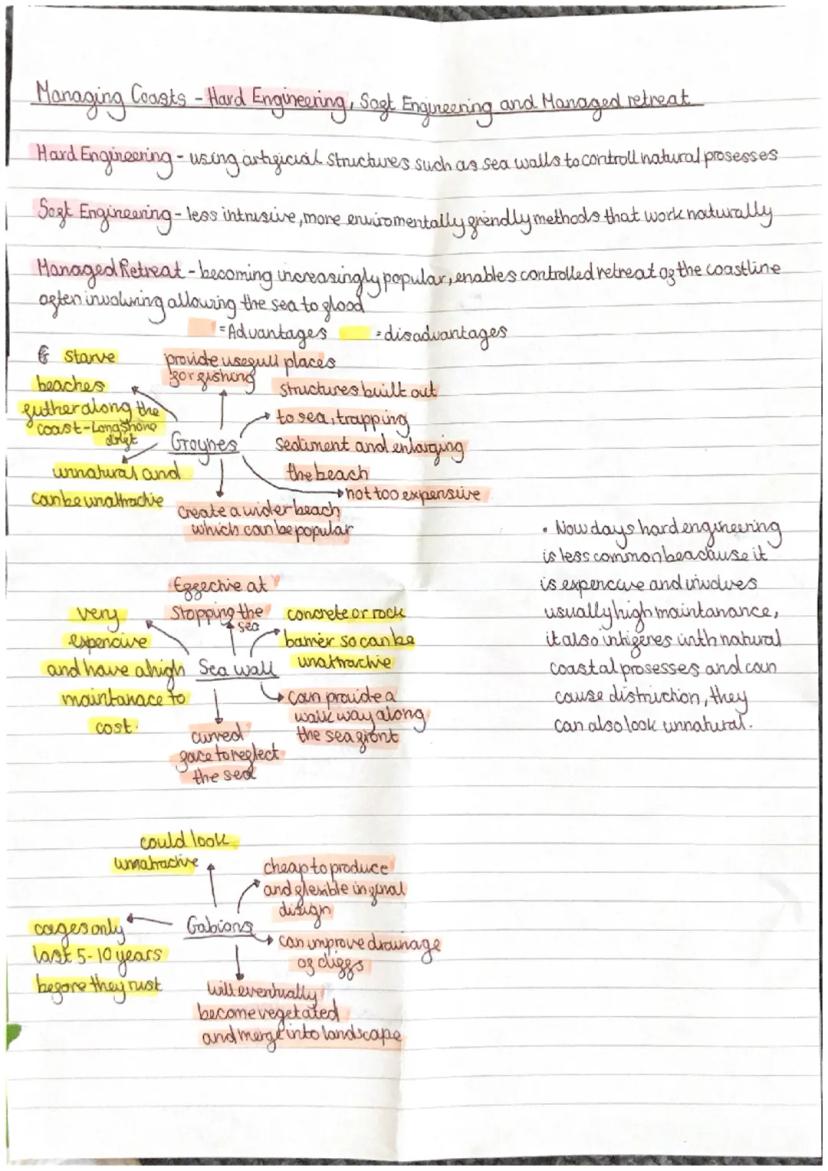 Managing Coasts - Hard Engineering, Soft Engineering and Managed retreat
Hard Engineering - using artificial structures such as sea walls to controll natural prosesses
Soft Engineering - less intrusive, more enviromentally friendly methods that work naturally
Managed Retreat - becoming increasingly popular, enables controlled retreat of the coastline
often involving allowing the sea to flood
= Advantages = disadvantages
starve
beaches
futher along the
coast - Longshore
drift
unnatural and
can be unattractive
provide usefull places
for fishing
Groynes
structures built out
to sea, trapping
sediment and enlarging
the beach
not too expensive
create a wider beach
which can be popular
• Nowdays hard engineering
is less common beacause it
is expencive and involves
usually high maintanance,
it also intigeres with natural
coastal prosesses and can
cause distruction, they
can also look unnatural.
Effective at
stopping the
sea
very
expencive
and have a high
maintanace to
cost.
Sea wall
concrete or rock
barrier so can be
unattractive
can provide a
walk way along
the sea front
curved
face to reflect
the sea
could look
unnatractive
Gabions
cheap to produce
and flexible in final
disign
can improve drainage
of cliffs
cages only
last 5-10 years
before they rust
will eventually
become vegetated
and merge into landscape